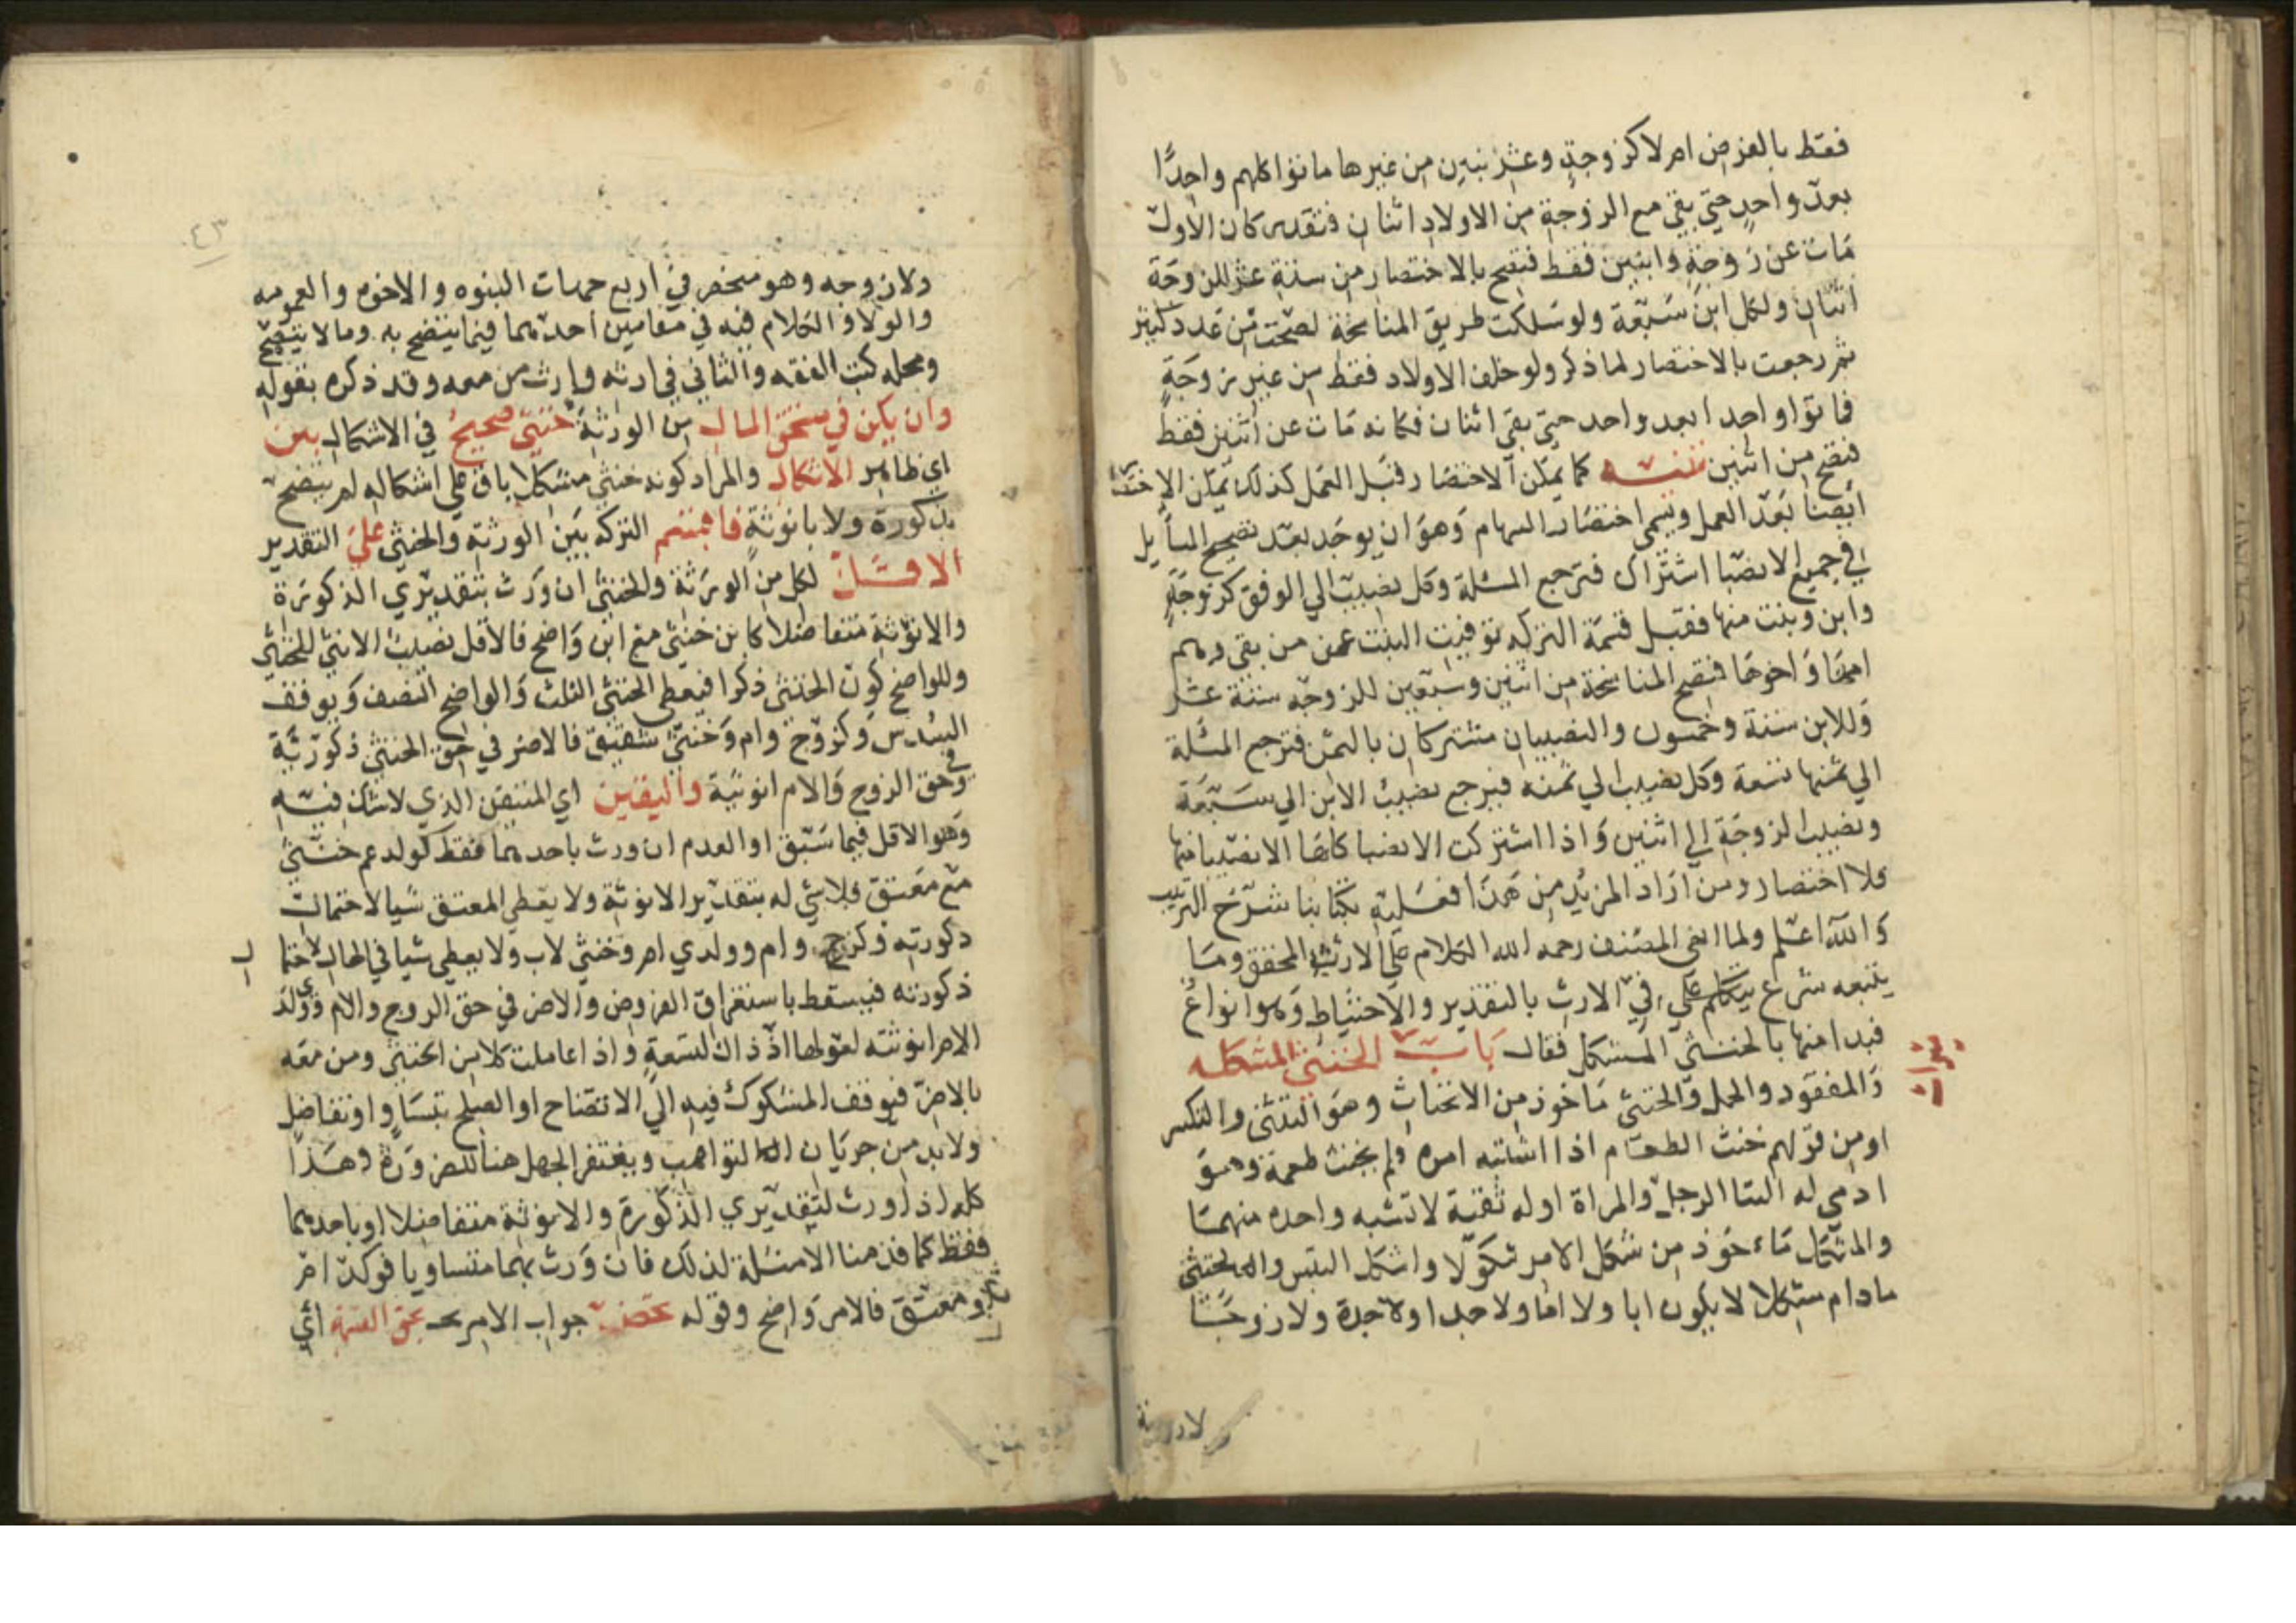 فقط بالفرض ام لا كزوجة وعشر بنين من غيرها ماتوا كلهم واحدًا
بعد واحد حتى بقي مع الزوجة من الاولاد اثنان فتقدر كان الاول
مات عن زوجة وابنين فقط فتصح بالاختصار من ستة عشر للزوجة
اثنان ولكل ابن سبعة ولو سلكت طريق المناسخة لصحت من عدد كثير
ثم رجعت بالاختصار لما ذكر ولو خلف الاولاد فقط من غير زوجة
فماتوا واحدا بعد واحد حتى بقي اثنان فكانه مات عن اثنين فقط
فتصح من اثنين تنبيه كما يمكن الاختصار قبل العمل كذلك يمكن الاختصار
ايضا بعد العمل ويسمى اختصار السهام وهو ان يوجد بعد تصحيح المسايل
في جميع الانصبا اشتراك فترجع المسئلة وكل نصيب الي الوفق كزوجة
وابن وبنت منها فقبل قسمة التركه توفيت البنت عمن بقي وهم
امها واخوها فتصح المناسخة من اثنين وسبعين للزوجه ستة عشر
وللابن ستة وخمسون والنصيبان مشتركان بالثمن فترجع المسئلة
الي ثمنها تسعة وكل نصيب الي ثمنه فيرجع نصيب الابن الي سبعة
ونصيب الزوجة الي اثنين واذا اشتركت الانصبا كلها الا نصيبا منها
فلا اختصار ومن اراد المزيد من هذا فعليه بكتابنا شرح الترتيب
والله اعلم ولما انهى المصنف رحمه الله الكلام علي الارث المحقق وما
يتبعه شرع يتكلم علي في الارث بالتقدير والاحتياط وهو انواع
فبدا منها بالخنثي المشكل فقال باب الخنثي المشكل
والمفقود والحمل والخنثي ماخوذ من الانخناث وهو التثني والتكسر
او من قولهم خنث الطعام اذا اشتبه امره فلم يخلص طعمه وهو
ادمي له التا الرجل والمراة او له ثقبة لا تشبه واحده منهما
والمشكل ماءخوذ من شكل الامر شكولا واشكل التبس والخنثي
مادام مشكلا لا يكون ابا ولا اما ولا جدا ولا جدة ولا زوجا
ولا زوجة
٤٣
ولا زوجه وهو منحصر في اربع جهات البنوه والاخوه والعمومه
والولاء والكلام فيه في مقامين احدهما فيما يتضح به وما لا يتضح
ومحله كتب الفقه والثاني في ارثه وارث من معه وقد ذكره بقوله
وان يكن في مستحق المال من الورثة خنثي صحيح في الاشكال بين
اي ظاهر الاشكال والمراد كونه خنثي مشكلا باق علي اشكاله لم يتضح
بذكورة ولا بانوثة فاقسم التركه بين الورثة والخنثي علي التقدير
الاقل لكل من الورثة والخنثي ان ورث بتقديري الذكورة
والانوثة متفاضلا كابن خنثي مع ابن واضح فالاقل نصيب الانثي للخنثي
وللواضح كون الخنثي ذكرا فيعطي الخنثي الثلث والواضح النصف ويوقف
السدس وكزوج وام وخنثي شقيق فالاضر في حق الخنثي ذكورته
وفي حق الزوج والام انوثته واليقين اي المتيقن الذي لا شك فيه
وهو الاقل فيما سبق او العدم ان ورث باحدهما فقط كولد عم خنثي
مع معتق فلا شي له بتقدير الانوثة ولا يعطي المعتق شيا لاحتمال
ذكورته وكزوج وام وولدي ام وخنثي لاب ولا يعطي شيا في الحال لاحتمال
ذكورته فيسقط باستغراق الفروض والاضر في حق الزوج والام وولدي
الام انوثته لعولها اذ ذاك لتسعة واذا عاملت كلا من الخنثي ومن معه
بالاضر فيوقف المشكوك فيه الي الاتضاح او الصلح بتساو او تفاضل
ولا بد من جريان التواهب ويغتفر الجهل هنا للضرورة وهذا
كله اذا ورث بتقديري الذكورة والانوثة متفاضلا او باحدهما
فقط كما قدمنا الامثلة لذلك فان ورث بهما متساويا فولد ام
ومعتق فالامر واضح وقوله تحظ جواب الامر بحق القسمة اي